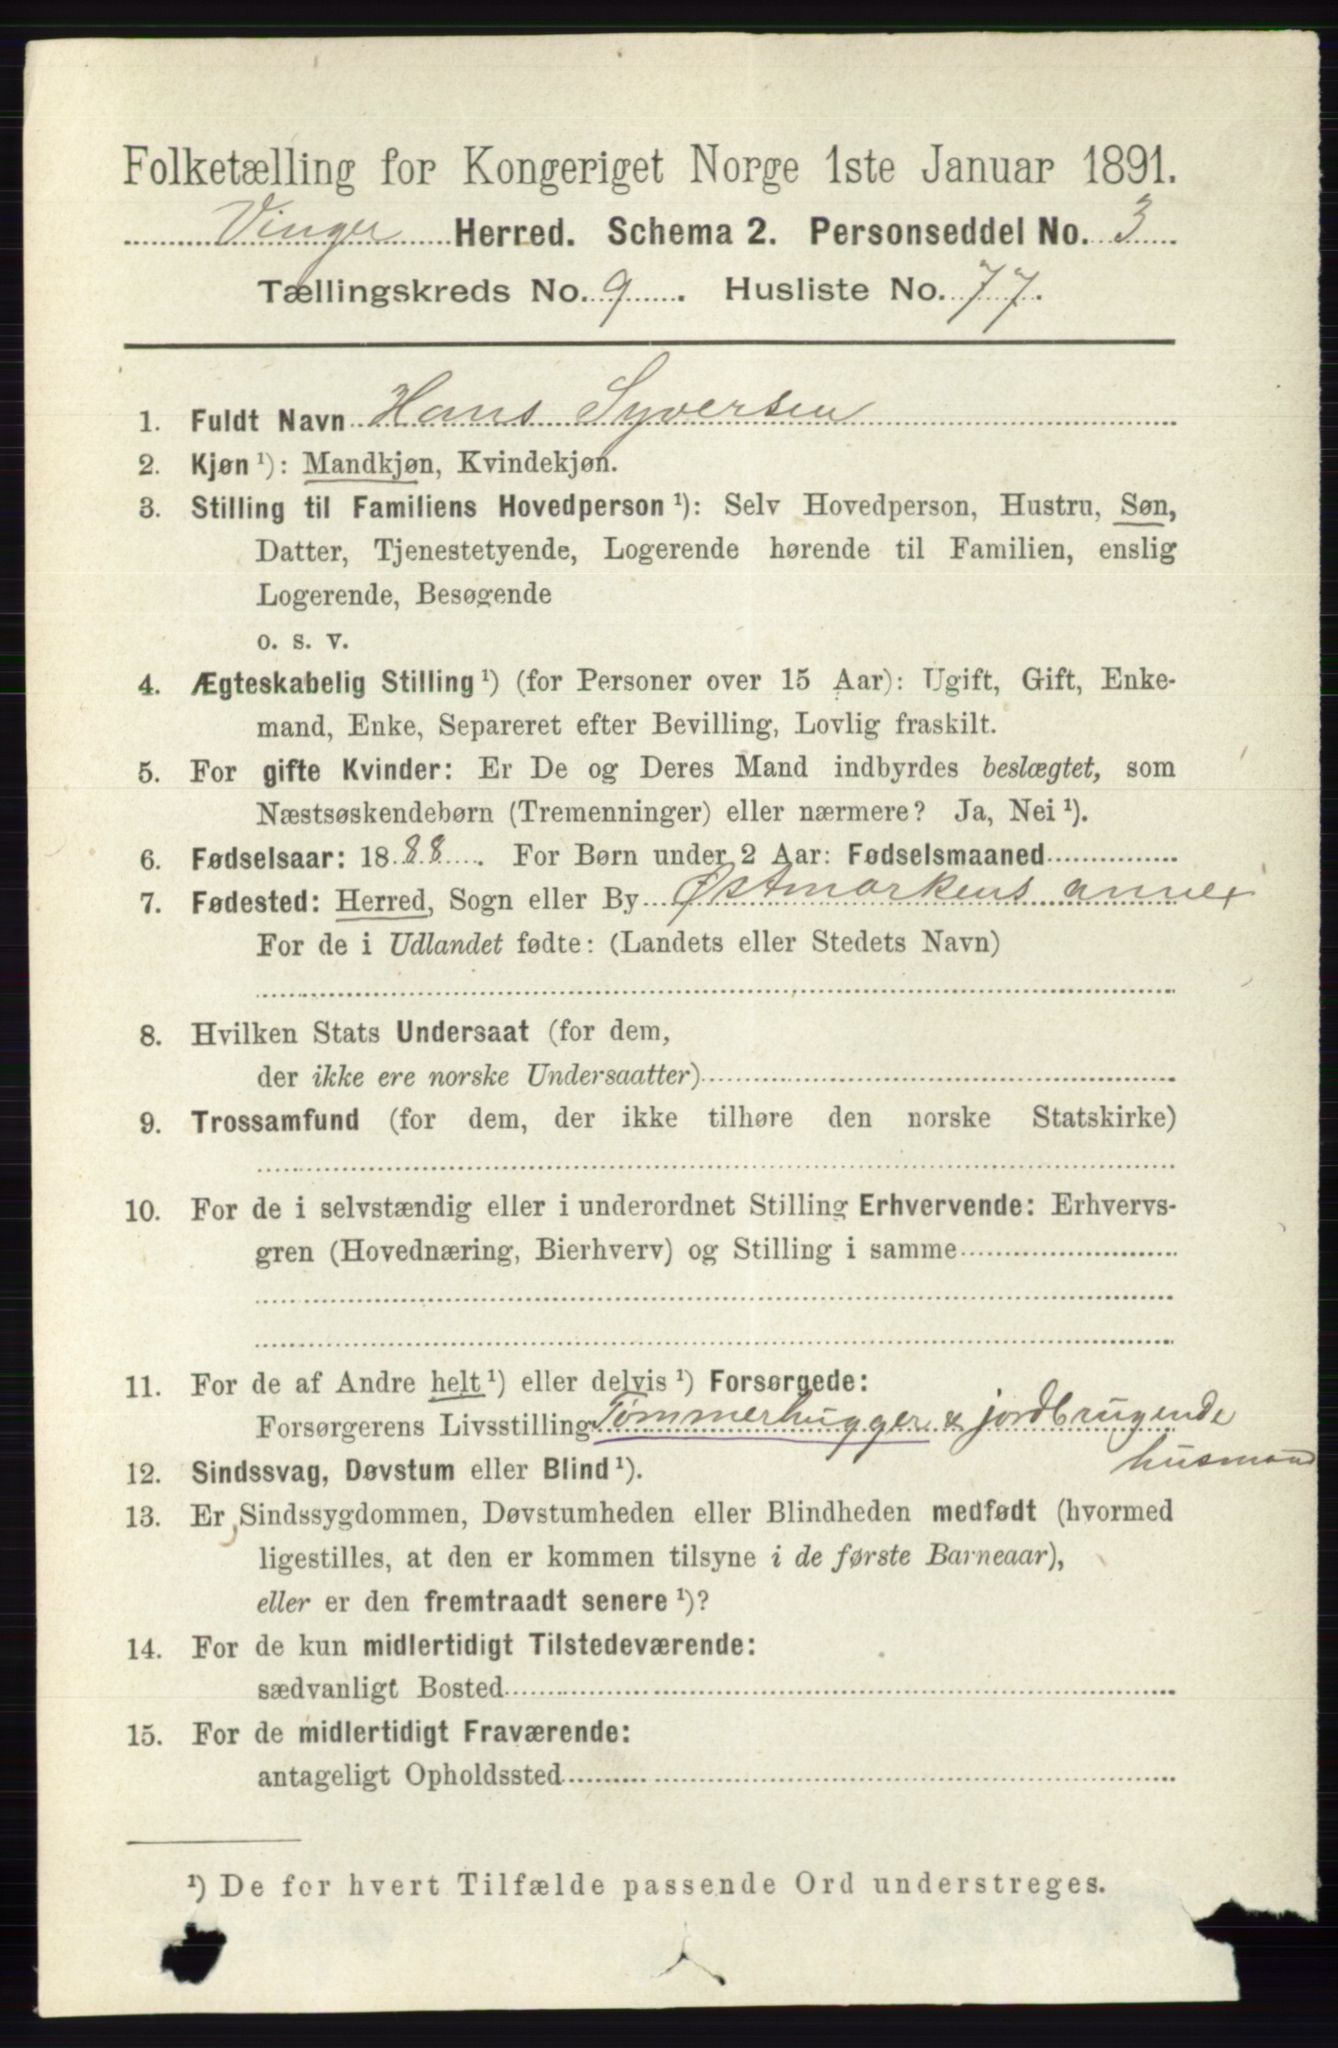 Folketælling for Kongeriget Norge 1ste Januar 1891.
Vinger Herred. Schema 2. Personseddel No. 3
Tællingskreds No. 9. Husliste No. 77.
1. Fuldt Navn Hans Syversen
2. Kjøn ¹): Mandkjøn, Kvindekjøn.
3. Stilling til Familiens Hovedperson ¹): Selv Hovedperson, Hustru, Søn,
Datter, Tjenestetyende, Logerende hørende til Familien, enslig
Logerende, Besøgende
o. s. v.
4. Ægteskabelig Stilling ¹) (for Personer over 15 Aar): Ugift, Gift, Enke-
mand, Enke, Separeret efter Bevilling, Lovlig fraskilt.
5. For gifte Kvinder: Er De og Deres Mand indbyrdes beslægtet, som
Næstsøskendebørn (Tremenninger) eller nærmere? Ja, Nei ¹).
6. Fødselsaar: 1888. For Børn under 2 Aar: Fødselsmaaned
7. Fødested: Herred, Sogn eller By Østmarkens annex
For de i Udlandet fødte: (Landets eller Stedets Navn)
8. Hvilken Stats Undersaat (for dem,
der ikke ere norske Undersaatter)
9. Trossamfund (for dem, der ikke tilhøre den norske Statskirke)
10. For de i selvstændig eller i underordnet Stilling Erhvervende: Erhvervs-
gren (Hovednæring, Bierhverv) og Stilling i samme
11. For de af Andre helt ¹) eller delvis ¹) Forsørgede:
Forsørgerens Livsstilling Tømmerhugger & jordbrugende
husmand
12. Sindssvag, Døvstum eller Blind ¹).
13. Er Sindssygdommen, Døvstumheden eller Blindheden medfødt (hvormed
ligestilles, at den er kommen tilsyne i de første Barneaar),
eller er den fremtraadt senere ¹)?
14. For de kun midlertidigt Tilstedeværende:
sædvanligt Bosted
15. For de midlertidigt Fraværende:
antageligt Opholdssted
¹) De for hvert Tilfælde passende Ord understreges.